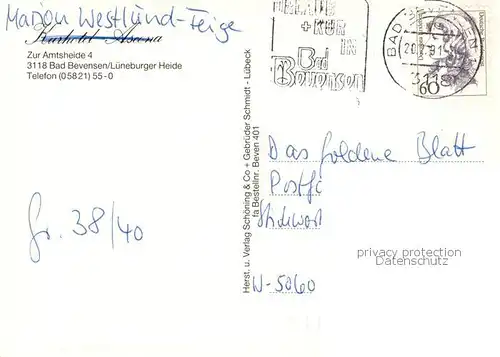 Marion Westlund-Feige
Kurhotel Ascona
Zur Amtsheide 4
3118 Bad Bevensen/Lüneburger Heide
Telefon (05821) 55-0
+ KUR
IN
Bad
Bevensen
BAD
3118
60
Herst. u. Verlag Schöning & Co + Gebrüder Schmidt - Lübeck
fa Bestellnr. Beven 401
Das goldene Blatt
Postf
Stichwort
W-5060
Gr. 38/40
privacy protection
Datenschutz